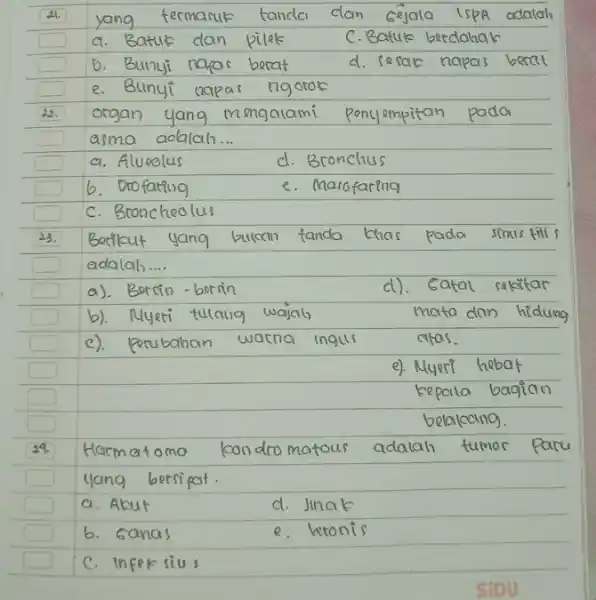 21. yang termasuk tanda dan gejala ISPA adalah
a. Batuk dan pilek C. Batuk berdahak
b. Bunyi napas berat d. sesak napas berat
e. Bunyi napas ngorok
22. organ yang mengalami penyempitan pada
asma adalah...
a. Alveolus d. Bronchus
b. Orofaring e. Masofaring
c. Broncheolus
23. Berikut yang bukan tanda khas pada
adalah....
a). Bersin - bersin d). Gatal sekitar
b). Nyeri tulang wajah mata dan hidung
c). perubahan warna ingus atas.
e). Nyeri hebat
kepala bagian
belakang.
Harmatoma kondromatous adalah tumor Paru
yang bersipat.
a. Akut d. Jinak
b. Ganas e. kronis
C. Infeksius
SIDU